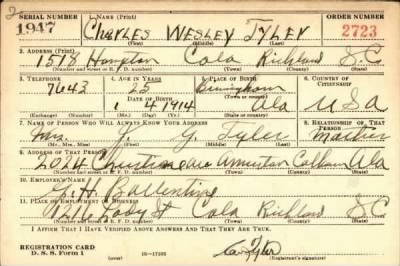 SERIAL NUMBER 1. NAME (Print) ORDER NUMBER
1947 CHARLES WESLEY TYLER 2723
(First) (Middle) (Last)
2. ADDRESS (Print)
1518 Hampton Cola Richland S.C.
(Number and street or R. F. D. number) (Town) (County) (State)
3. TELEPHONE 4. AGE IN YEARS 5. PLACE OF BIRTH 6. COUNTRY OF CITIZENSHIP
7643 25 Birmingham
DATE OF BIRTH (Town or county)
1 4 1914 Ala USA
(Mo.) (Day) (Yr.) (State or country)
7. NAME OF PERSON WHO WILL ALWAYS KNOW YOUR ADDRESS 8. RELATIONSHIP OF THAT PERSON
Mrs. Tyler Mother
(Mr., Mrs., Miss) (First) (Middle) (Last)
9. ADDRESS OF THAT PERSON
2024 Christine Ave Anniston Calhoun Ala
(Number and street or R. F. D. number) (Town) (County) (State)
10. EMPLOYER'S NAME
G. H. Ballentine
11. PLACE OF EMPLOYMENT OR BUSINESS
St Cola Richland S.C.
(Number and street or R. F. D. number) (Town) (County) (State)
I AFFIRM THAT I HAVE VERIFIED ABOVE ANSWERS AND THAT THEY ARE TRUE.
REGISTRATION CARD
D. S. S. Form 1 16—17105 (Registrant's signature)